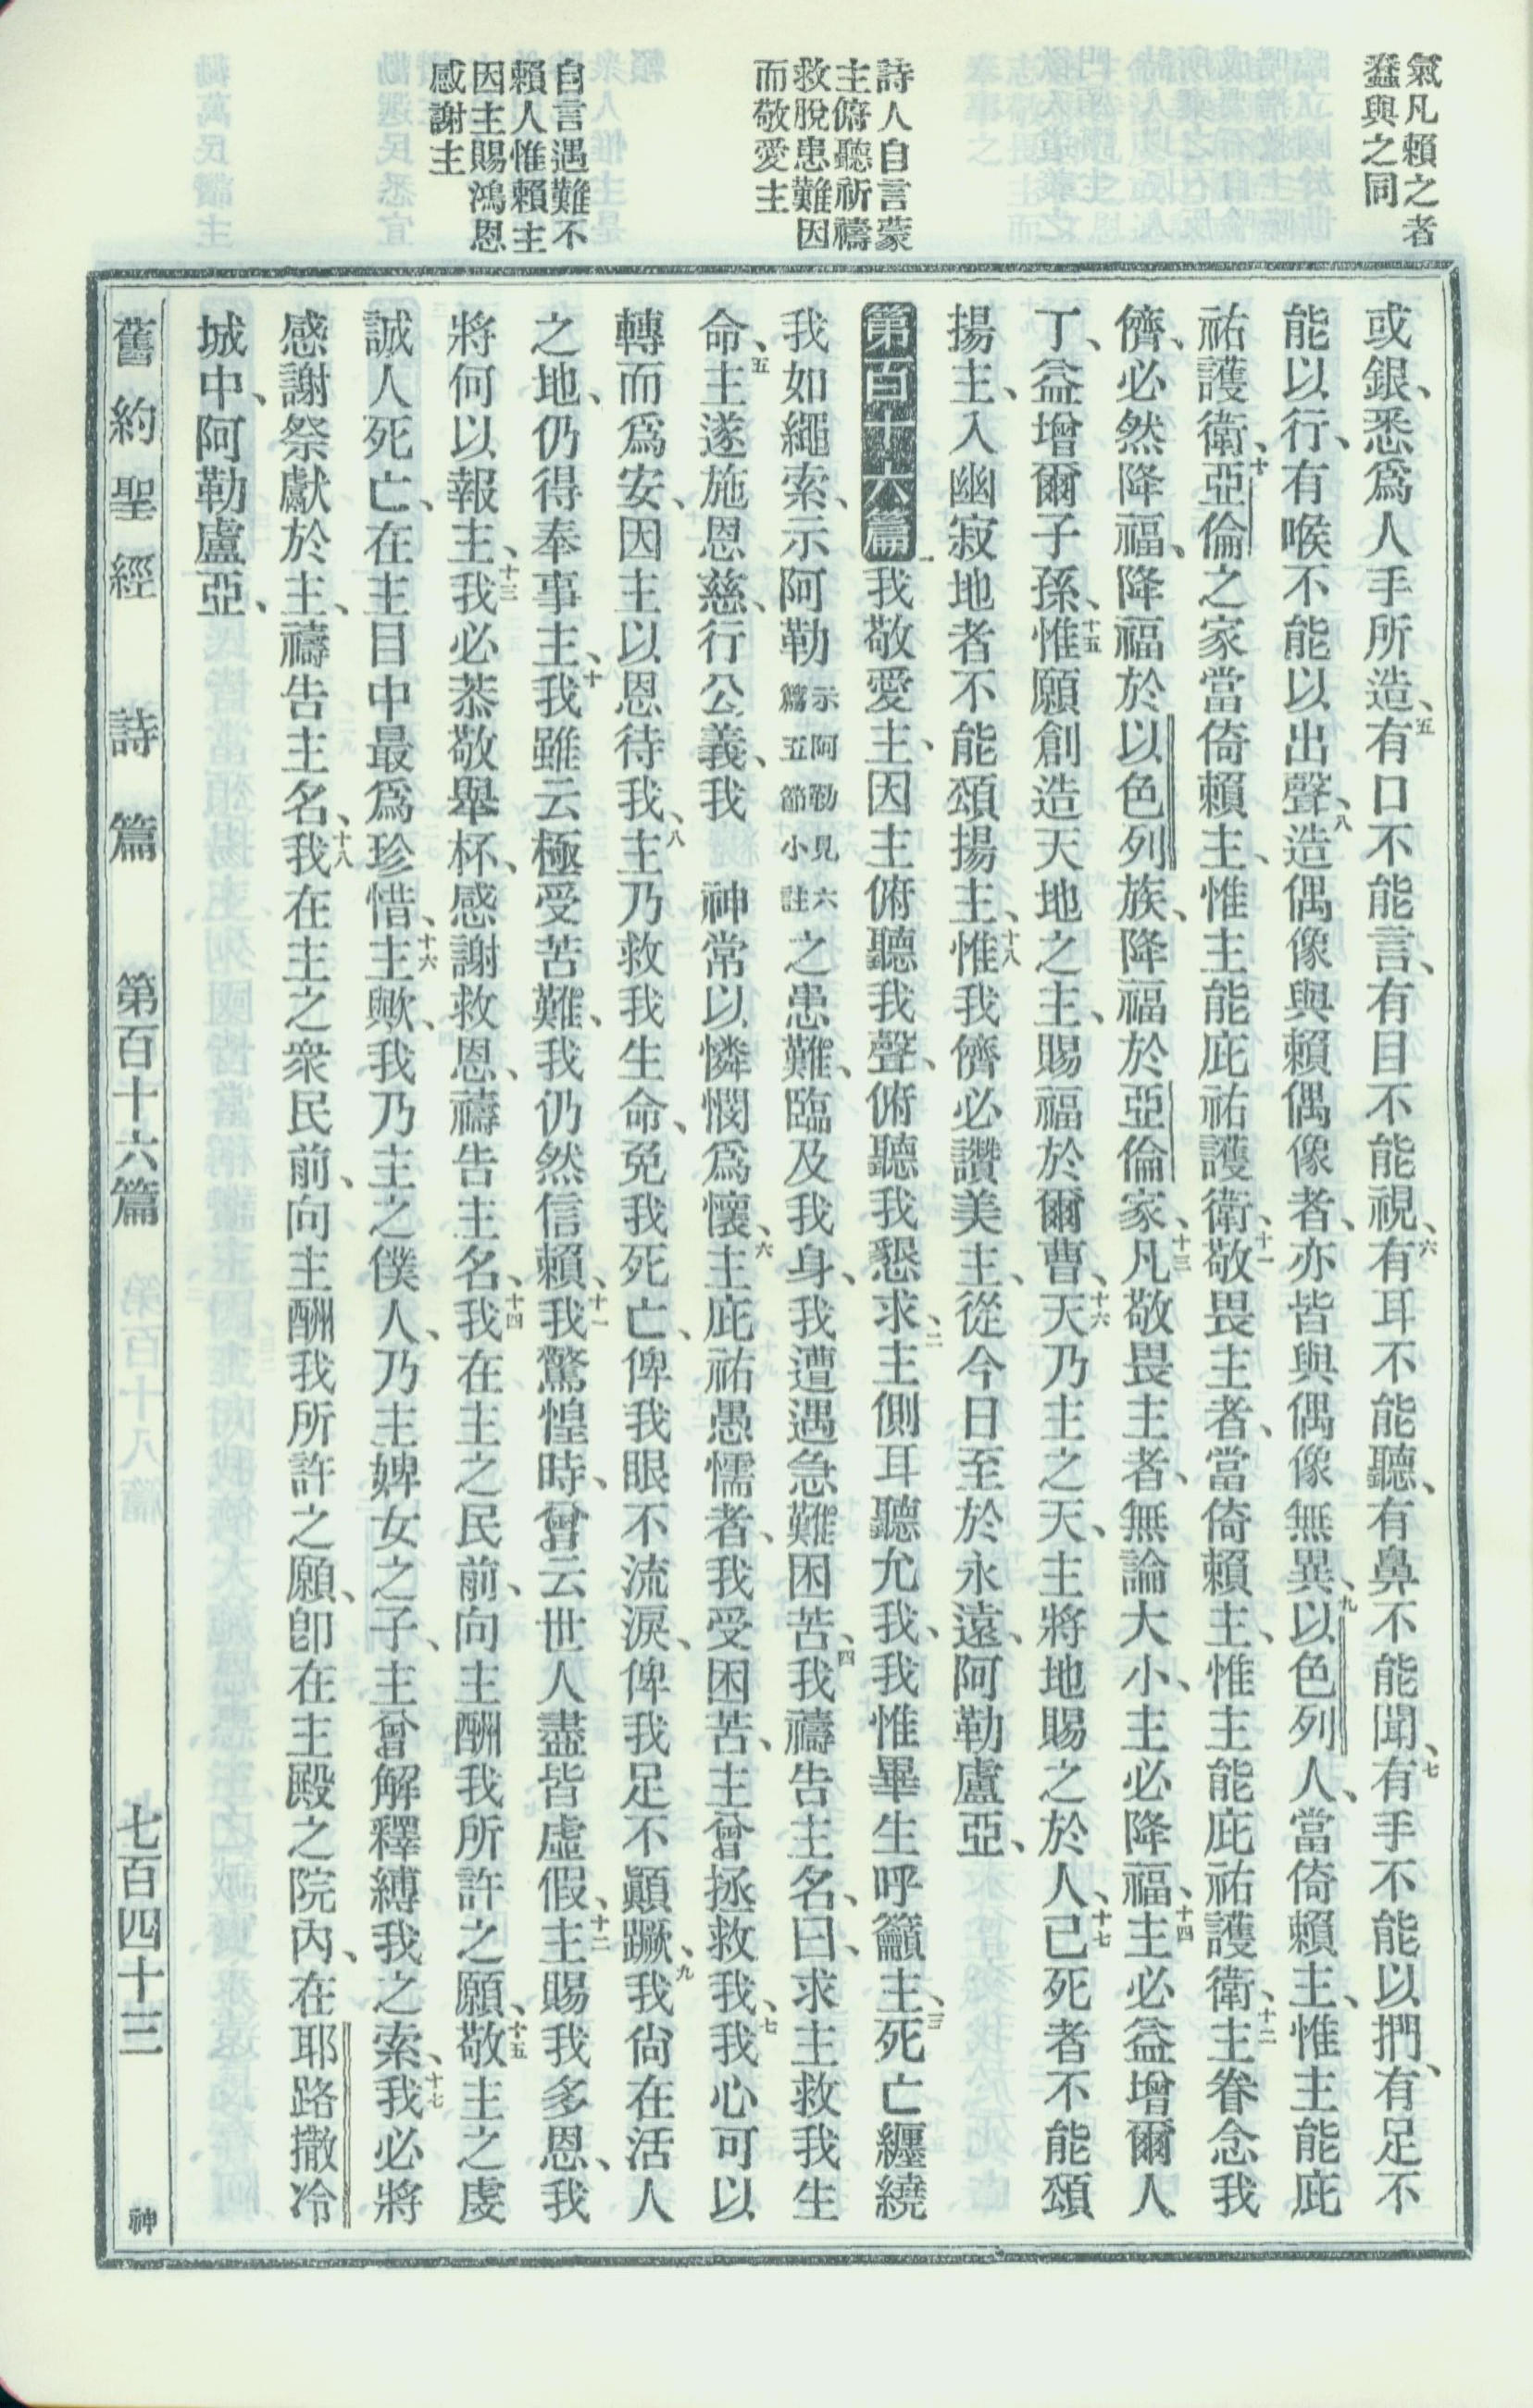 氣凡賴之者
蠢與之同
詩人自言蒙
主俯聽祈禱
救脫患難因
而敬愛主
自言遇難不
賴人惟賴主
因主賜鴻恩
感謝主
或銀、悉爲人手所造、五有口不能言、有目不能視、六有耳不能聽、有鼻不能聞、七有手不能以捫、有足不
能以行、有喉不能以出聲、八造偶像與賴偶像者、亦皆與偶像無異、九以色列人、當倚賴主、惟主能庇
祐護衛、十亞倫之家當倚賴主、惟主能庇祐護衛、十一敬畏主者、當倚賴主、惟主能庇祐護衛、十二主眷念我
儕、必然降福、降福於以色列族、降福於亞倫家、十三凡敬畏主者、無論大小、主必降福、十四主必益增爾人
丁、益增爾子孫、十五惟願創造天地之主、賜福於爾曹、十六天乃主之天、主將地賜之於人、十七已死者不能頌
揚主、入幽寂地者不能頌揚主、十八惟我儕必讚美主、從今日至於永遠、阿勒盧亞、
第百十六篇 一我敬愛主、因主俯聽我聲、俯聽我懇求、二主側耳聽允我、我惟畢生呼籲主、三死亡纏繞
我如繩索、示阿勒示阿勒見六篇五節小註之患難、臨及我身、我遭遇急難困苦、四我禱告主名、曰、求主救我生
命、五主遂施恩慈、行公義、我 神常以憐憫爲懷、六主庇祐愚懦者、我受困苦、主曾拯救我、七我心可以
轉而爲安、因主以恩待我、八主乃救我生命、免我死亡、俾我眼不流淚、俾我足不顚蹶、九我尙在活人
之地、仍得奉事主、十我雖云極受苦難、我仍然信賴、十一我驚惶時、曾云世人盡皆虛假、十二主賜我多恩、我
將何以報主、十三我必恭敬舉杯、感謝救恩、禱告主名、十四我在主之民前、向主酬我所許之願、十五敬主之虔
誠人死亡、在主目中最爲珍惜、十六主歟、我乃主之僕人、乃主婢女之子、主曾解釋縛我之索、十七我必將
感謝祭獻於主、禱告主名、十八我在主之衆民前、向主酬我所許之願、卽在主殿之院內、在耶路撒冷
城中、阿勒盧亞、
舊約聖經 詩篇 第百十六篇 七百四十三 神